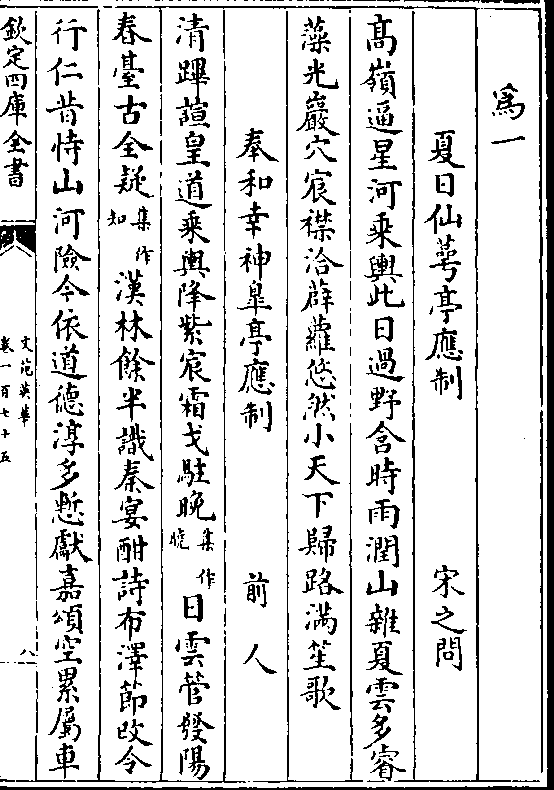 爲一
夏日仙萼亭應制 宋之問
髙嶺逼星河乘輿此日過野含時雨潤山雜夏雲多睿
藻光巖穴宸襟洽薜蘿悠然小天下歸路滿笙歌
奉和幸神臯亭應制 前人
清蹕諠皇道乘輿降紫宸霜戈駐晩集作曉日雲管發陽
春臺古全疑集作知漢林餘半識秦宴酣詩布澤節改令
行仁昔恃山河險今依道德淳多慙獻嘉頌空累屬車
欽定四庫全書
文苑英華
卷一百七十五
八